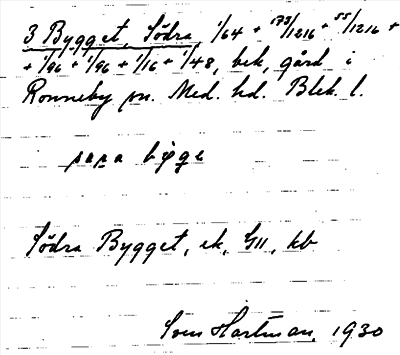 3 Bygget, Södra 1/64 + 173/1216 + 55/1216 +
+ 1/96 + 1/96 + 1/16 + 1/48, bek, gård i
Ronneby sn. Med. hd. Blek. l.
Södra Bygget, ek, G11, kb
Sven Hartman, 1930